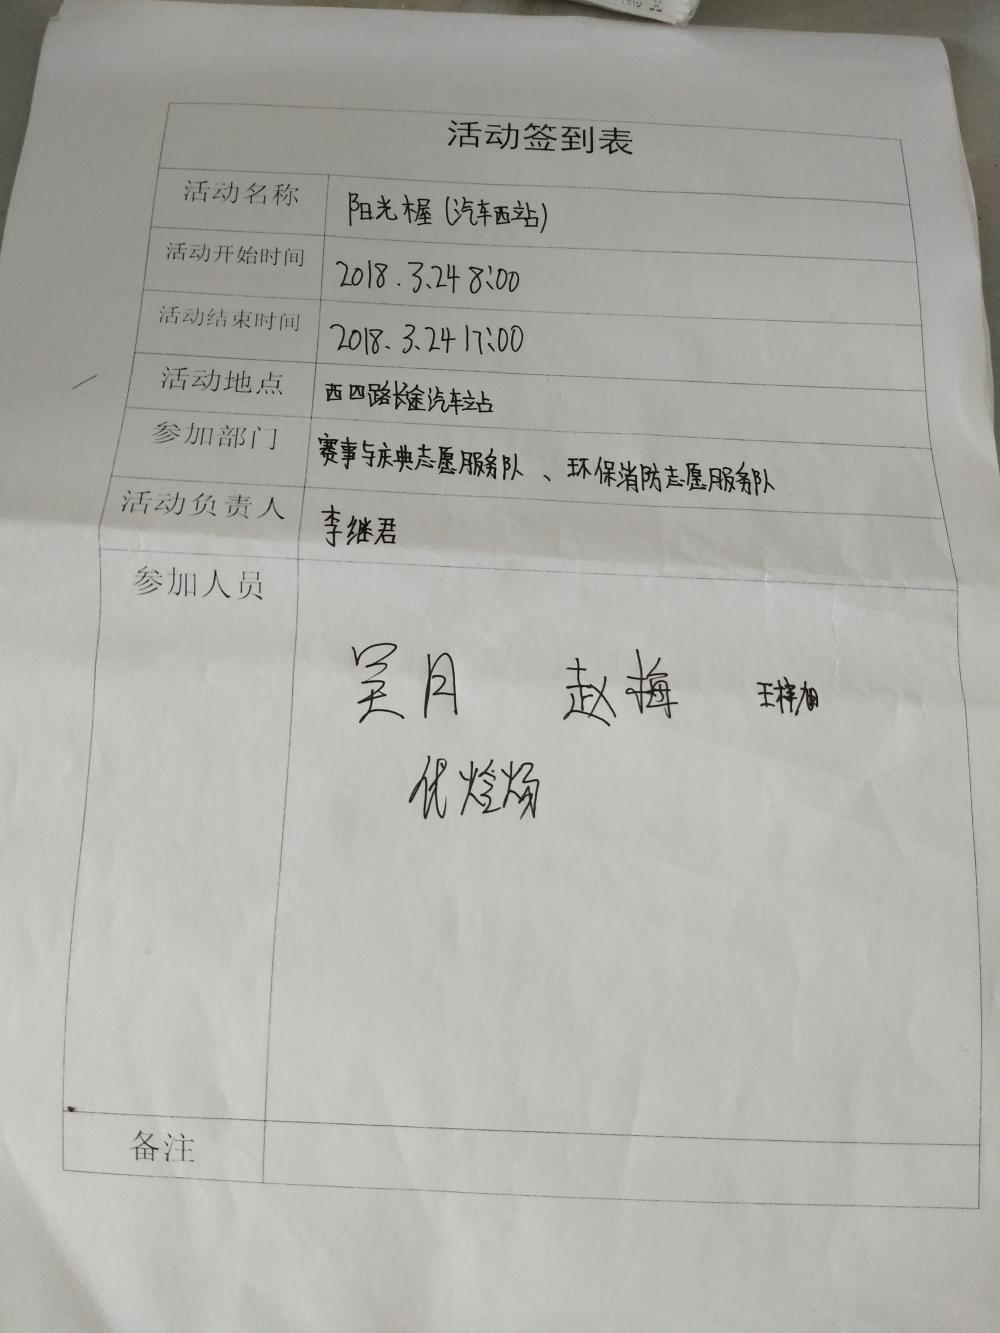 活动签到表
活动名称 阳光木屋(汽车西站)
活动开始时间 2018.3.24 8:00
活动结束时间 2018.3.24 17:00
活动地点 西四路长途汽车站
参加部门 赛事与庆典志愿服务队、环保消防志愿服务队
活动负责人 李继君
参加人员
吴月 赵梅 王梓旭
备注